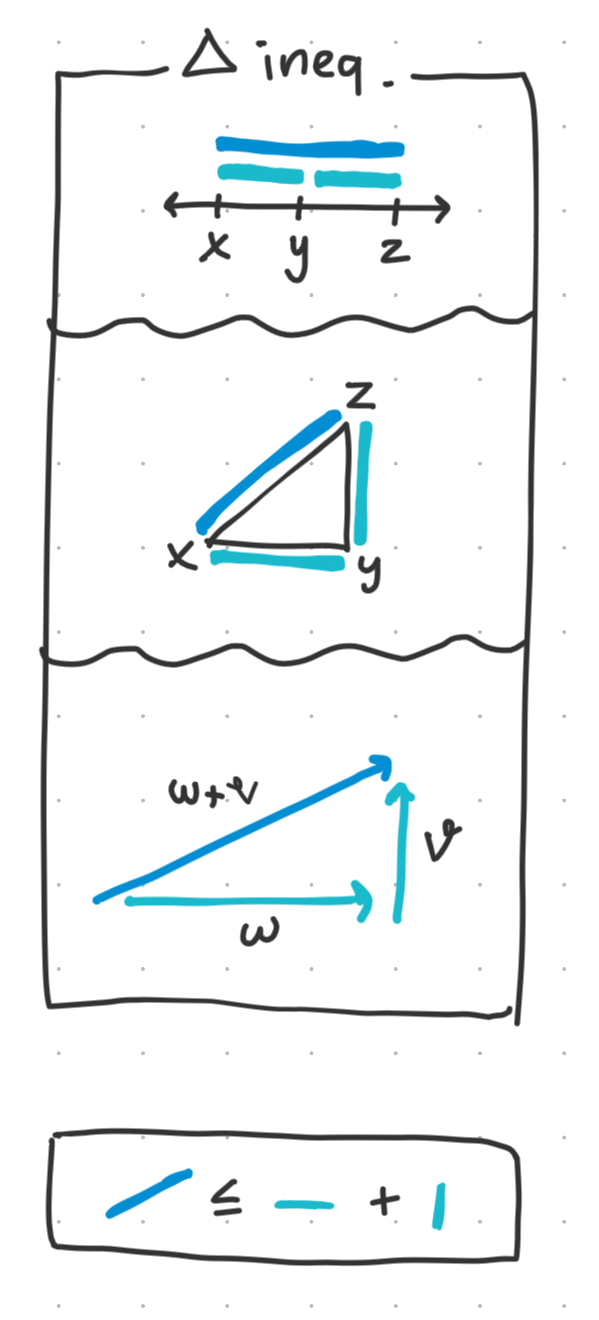 △ ineq.
x y z
z
x y
w+v
v
w
≤ +